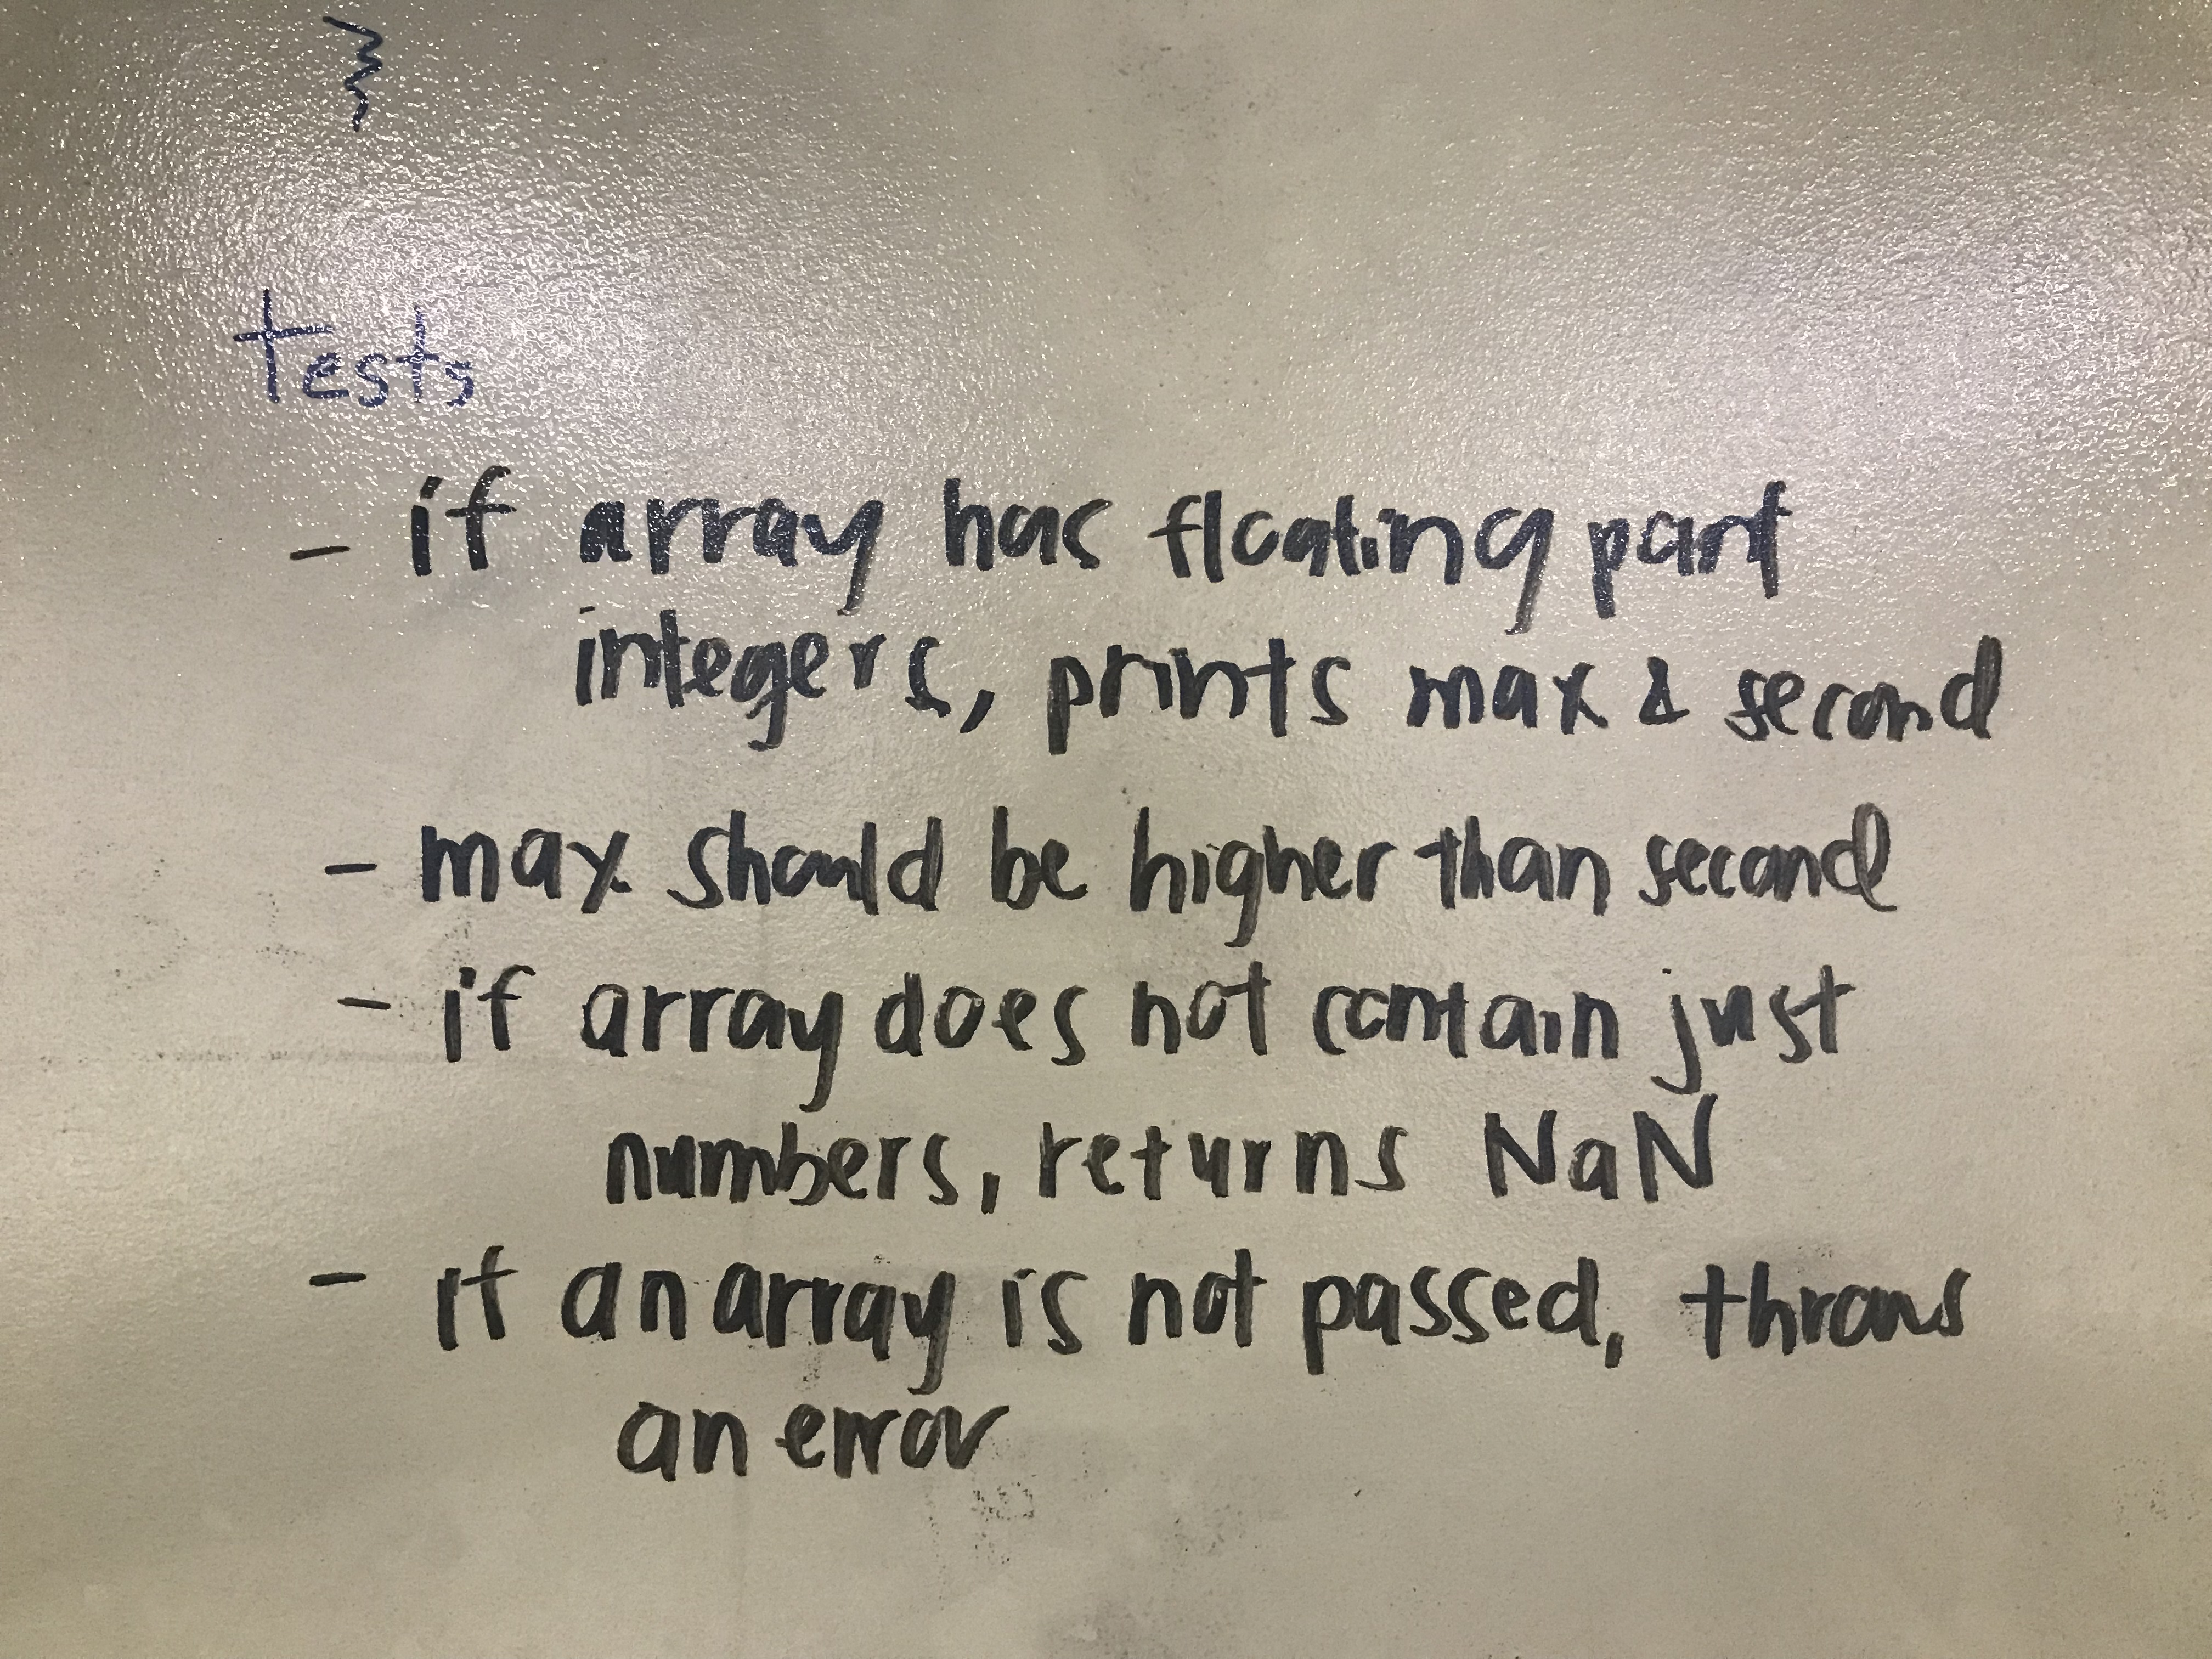 }
tests
- if array has floating part
integers, prints max & second
- max should be higher than second
- if array does not contain just
numbers, returns NaN
- if an array is not passed, throws
an error